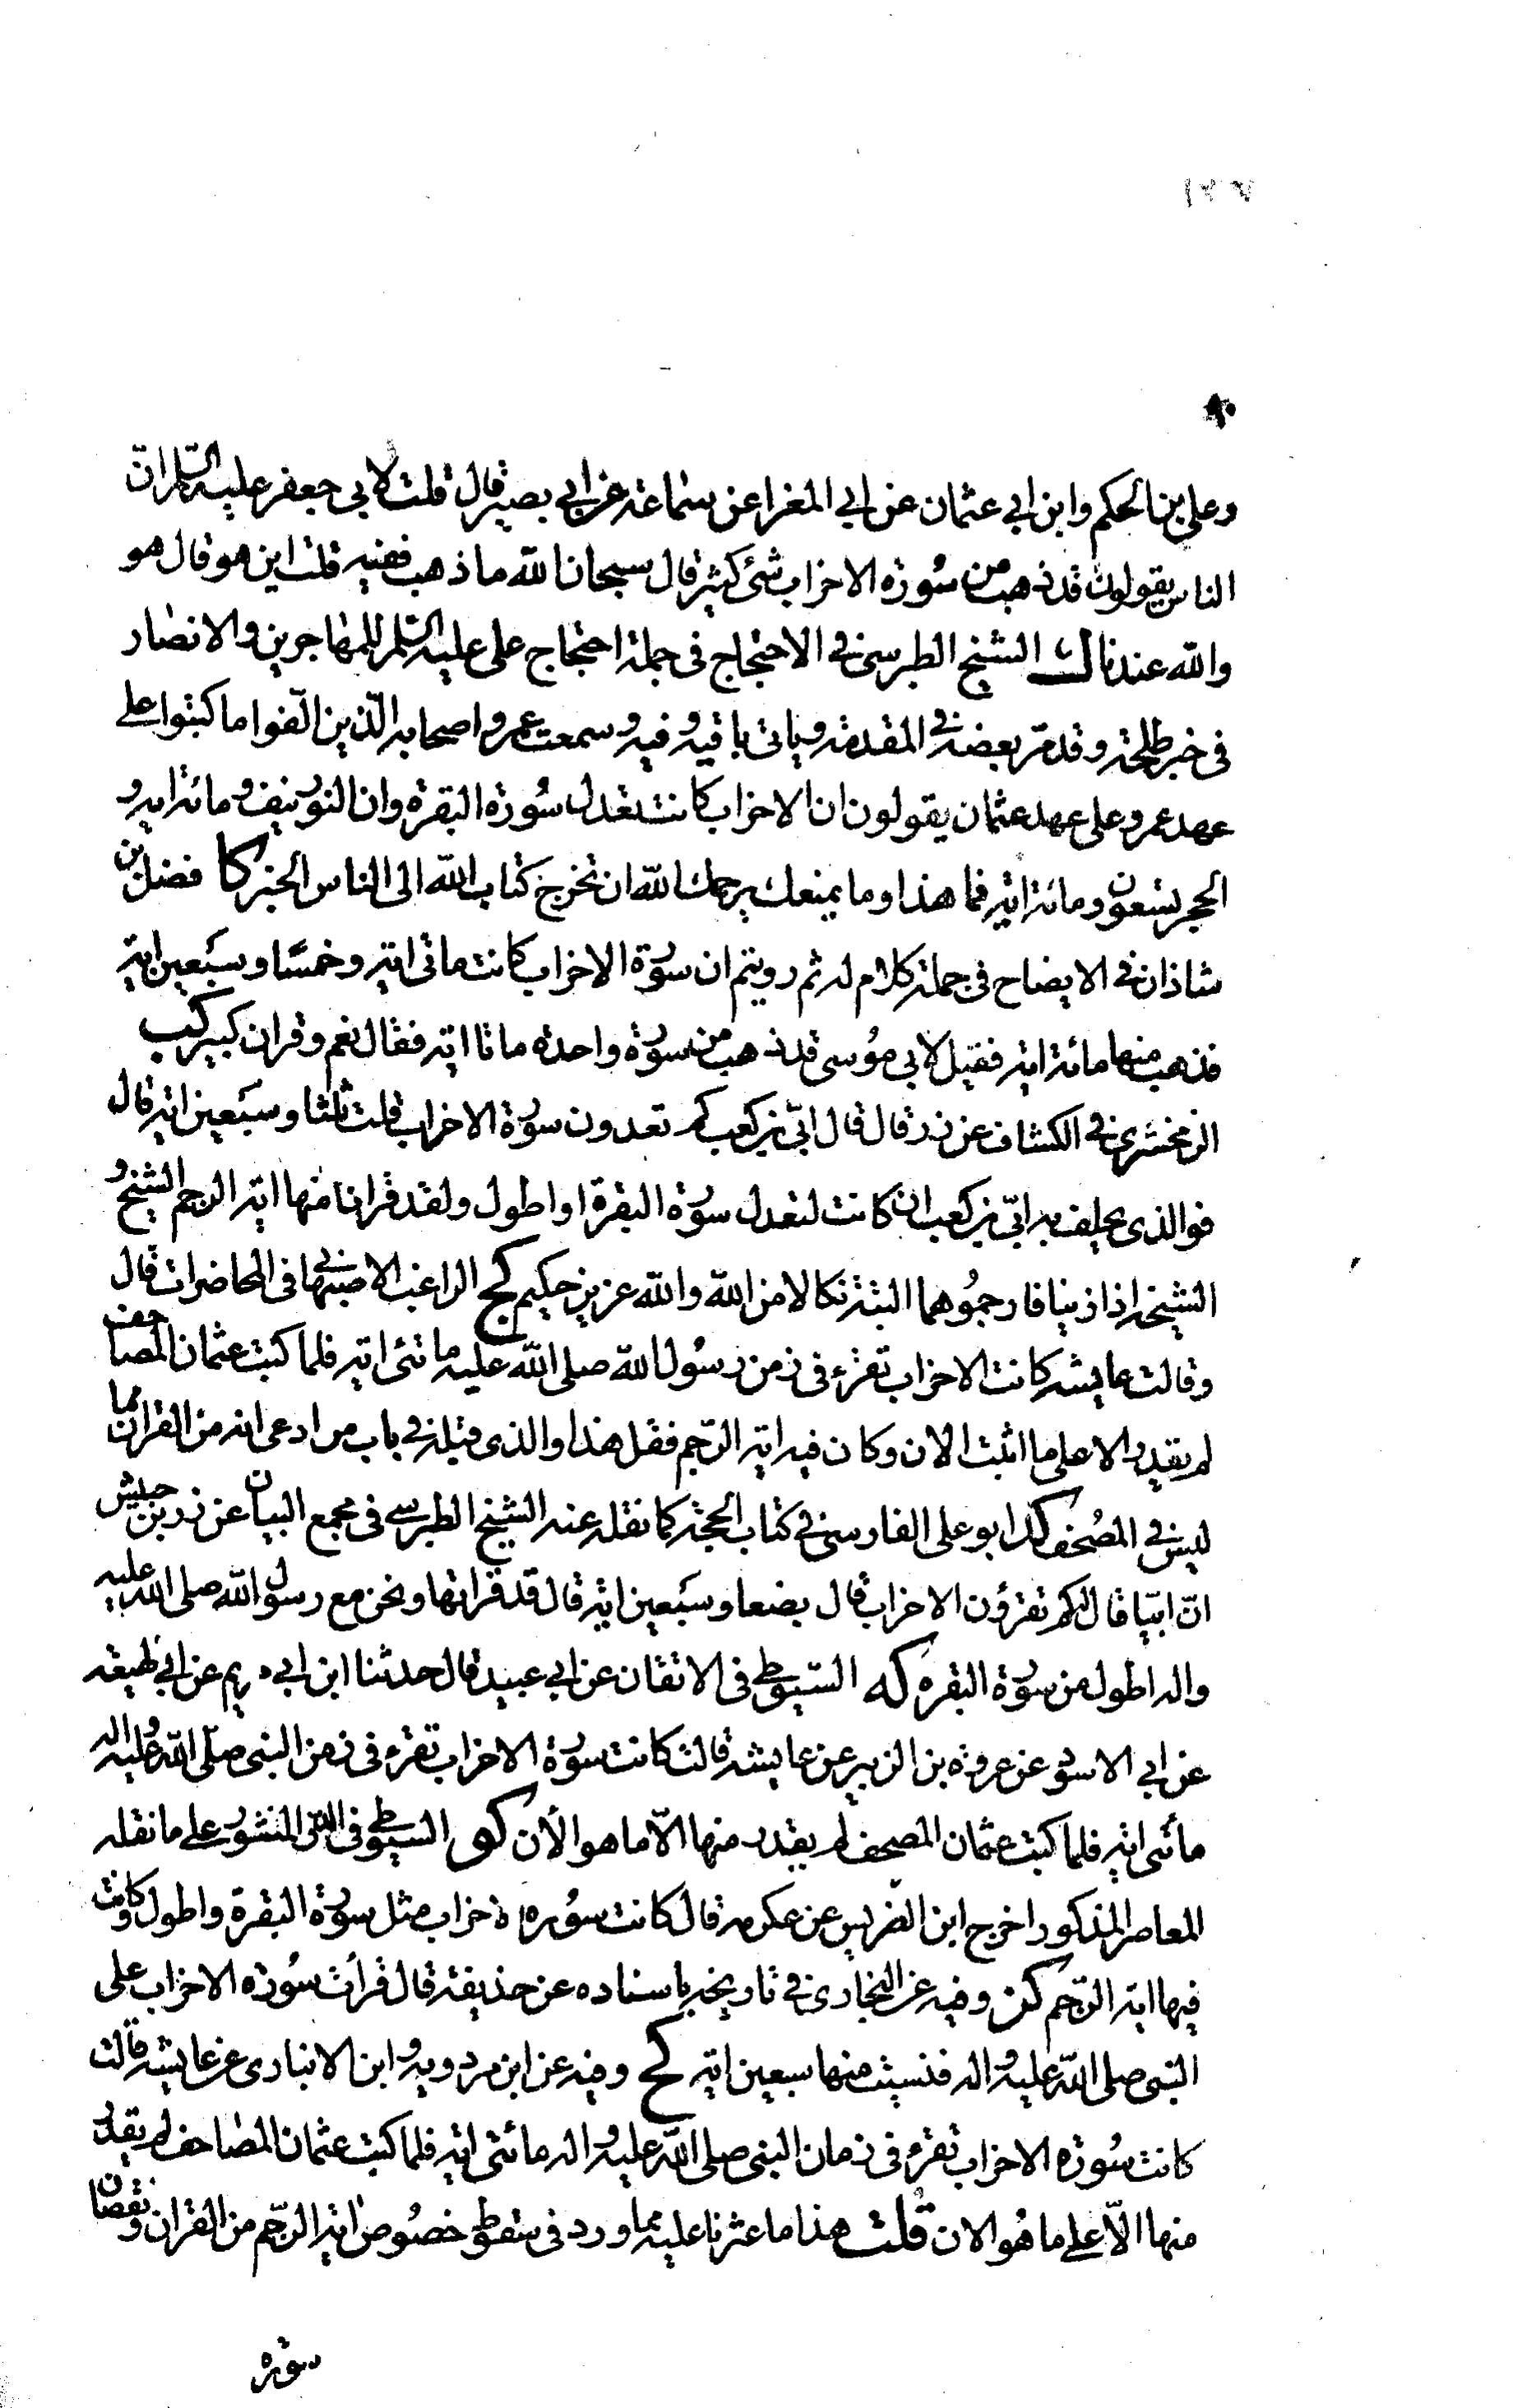 وعلی بن الحکم وابن ابی عثمان عن ابی المغرا عن سماعة عن ابی بصیر قال قلت لابی جعفر علیه السلام ان
الناس یقولون قد ذهب من سورة الاحزاب شئ کثیر قال سبحان الله ما ذهب ففیه قلت این هو قال هو
والله عندنا الشیخ الطبرسی فی الاحتجاج فی جملة احتجاج علی علیه السلام للمهاجرین والانصار
فی خبر طلحة وقد مر بعضه فی المقدمة ویاتی باقیه وفیه وسمعت عمر واصحابه الذین الفوا ما کتبوا علی
عهد عمر وعلی عهد عثمان یقولون ان الاحزاب کانت تعدل سورة البقرة وان النور نیف ومائة ایة و
الحجر تسعون ومائة ایة فما هذا وما یمنعک یرحمک الله ان تخرج کتاب الله الی الناس الخبر کا فضل بن
شاذان فی الایضاح فی جملة کلام له ثم رویتم ان سورة الاحزاب کانت مائتی ایة وخمسا وسبعین ایة
فذهب منها مائة ایة فقیل لابی موسی قد ذهب من سورة واحدة مائتا ایة فقال نعم وقران کثیر کب
الزمخشری فی الکشاف عن زر قال قال ابی بن کعب کم تعدون سورة الاحزاب قلت ثلثا وسبعین ایة قال
فوالذی یحلف به ابی بن کعب ان کانت لتعدل سورة البقرة او اطول ولقد قرانا منها ایة الرجم الشیخ و
الشیخة اذا زنیا فارجموهما البتة نکالا من الله والله عزیز حکیم کج الراغب الاصبهانی فی المحاضرات قال
وقالت عایشة کانت الاحزاب تقرء فی زمن رسول الله صلی الله علیه مائتی ایة فلما کتب عثمان المصاحف
لم یقدر الا علی ما اثبت الان وکان فیه ایة الرجم فقل هذا والذی قبله فی باب من ادعی انه من القران مما
لیس فی المصحف کد ابو علی الفارسی فی کتاب الحجة کما نقله عنه الشیخ الطبرسی فی مجمع البیان عن زر بن حبیش
ان ابیا قال لکم تقرؤن الاحزاب قال بضعا وسبعین ایة قال قد قراتها ونحن مع رسول الله صلی الله علیه
واله اطول من سورة البقره که السیوطی فی الاتقان عن ابی عبید قال حدثنا ابن ابی مریم عن ابی لهیعة
عن ابی الاسود عن عروة بن الزبیر عن عایشة قالت کانت سورة الاحزاب تقرء فی زمن النبی صلی الله علیه واله
مائتی ایة فلما کتب عثمان المصحف لم یقدر منها الا ما هو الأن کو السیوطی فی الدر المنثور علی ما نقله
المعاصر المذکور اخرج ابن الضریس عن عکرمة قال کانت سورة الاحزاب مثل سورة البقرة واطول وکانت
فیها ایة الرجم کز وفیه عن البخاری فی تاریخه باسناده عن حذیفة قال قرأت سورة الاحزاب علی
النبی صلی الله علیه واله فنسیت منها سبعین ایة کح وفیه عن ابن مردویه وابن الانباری عن عایشة قالت
کانت سورة الاحزاب تقرء فی زمان النبی صلی الله علیه واله مائتی ایة فلما کتب عثمان المصاحف لم یقدر
منها الا علی ما هو الان قلت هذا ما عثرنا علیه مما ورد فی سقط خصوص ایة الرجم من القران ونقصان
سورة